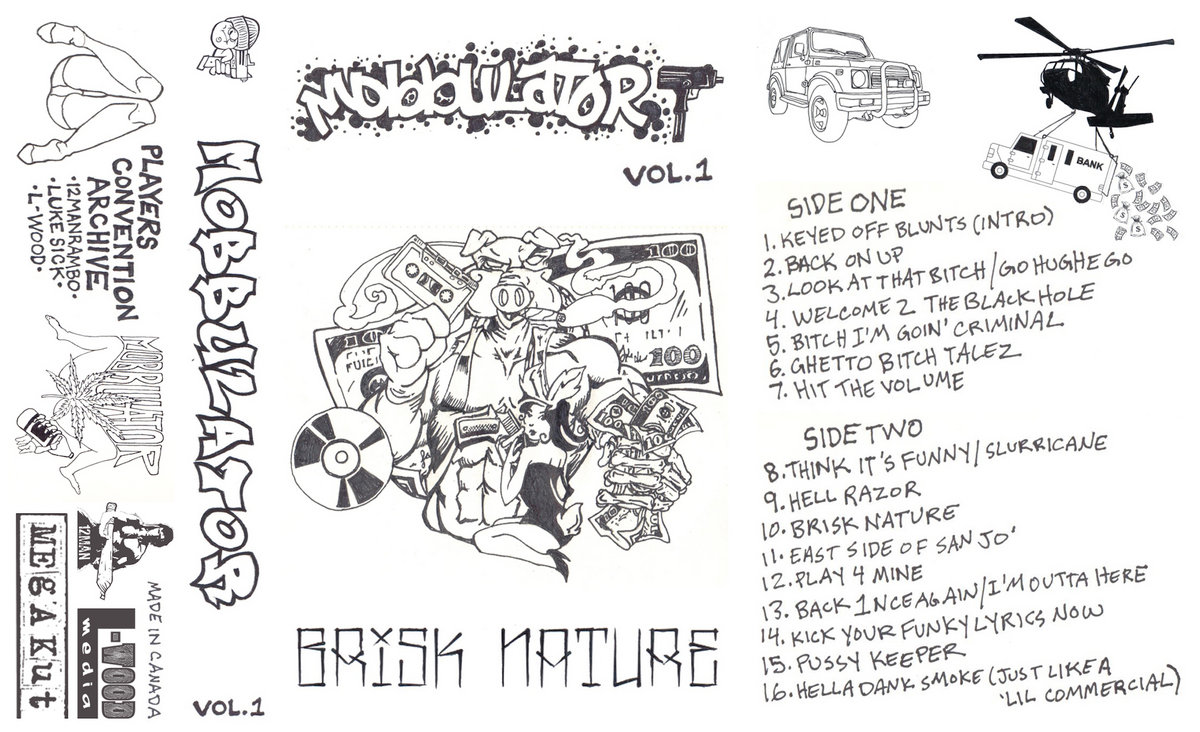 PLAYERS
CONVENTION
ARCHIVE
·12MANRAMBO·
·LUKE SICK·
·L-WOOD·
MOBBULATOR
12MAN
MEgAKut
L-WOOD
media
MADE IN CANADA
MOBBULATOR
VOL.1
MOBBULATOR
VOL.1
100
100
100
BRISK NATURE
BANK
SIDE ONE
1. KEYED OFF BLUNTS (INTRO)
2. BACK ON UP
3. LOOK AT THAT BITCH/GO HUGHE GO
4. WELCOME 2 THE BLACK HOLE
5. BITCH I'M GOIN' CRIMINAL
6. GHETTO BITCH TALEZ
7. HIT THE VOLUME
SIDE TWO
8. THINK IT'S FUNNY/SLURRICANE
9. HELL RAZOR
10. BRISK NATURE
11. EAST SIDE OF SAN JO'
12. PLAY 4 MINE
13. BACK 1NCE AGAIN/I'M OUTTA HERE
14. KICK YOUR FUNKY LYRICS NOW
15. PUSSY KEEPER
16. HELLA DANK SMOKE (JUST LIKE A
'LIL COMMERCIAL)